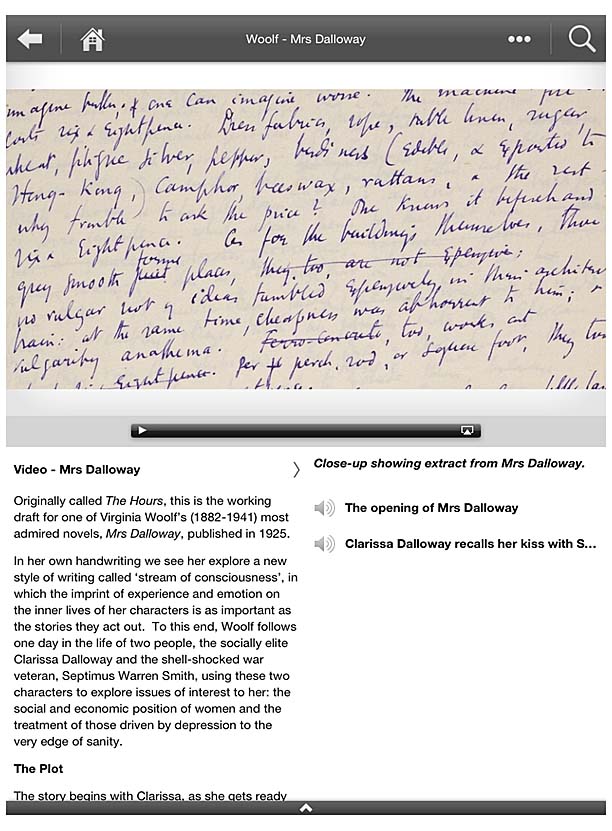 Woolf - Mrs Dalloway
imagine better, & one can imagine worse. The machine
costs six & Eightpence. Dress fabrics, rope, table linen, sugar,
wheat, filigree silver, pepper, birds nests (edible, & exported to
Hong-Kong,) Camphor, beeswax, rattans, & the rest
why trouble to ask the price? One knows it beforehand
six & Eightpence. As for the buildings themselves, those
grey smooth places, they, too, are not expensive;
no vulgar riot of ideas tumbled expensively in their
at the same time, cheapness was abhorrent to him;
vulgarity anathema. Ferro-concrete, too, works out
Eightpence. per perch, rod, or square foot, They
Video - Mrs Dalloway
Originally called The Hours, this is the working
draft for one of Virginia Woolf's (1882-1941) most
admired novels, Mrs Dalloway, published in 1925.
In her own handwriting we see her explore a new
style of writing called 'stream of consciousness', in
which the imprint of experience and emotion on
the inner lives of her characters is as important as
the stories they act out. To this end, Woolf follows
one day in the life of two people, the socially elite
Clarissa Dalloway and the shell-shocked war
veteran, Septimus Warren Smith, using these two
characters to explore issues of interest to her: the
social and economic position of women and the
treatment of those driven by depression to the
very edge of sanity.
The Plot
The story begins with Clarissa, as she gets ready
Close-up showing extract from Mrs Dalloway.
The opening of Mrs Dalloway
Clarissa Dalloway recalls her kiss with S...